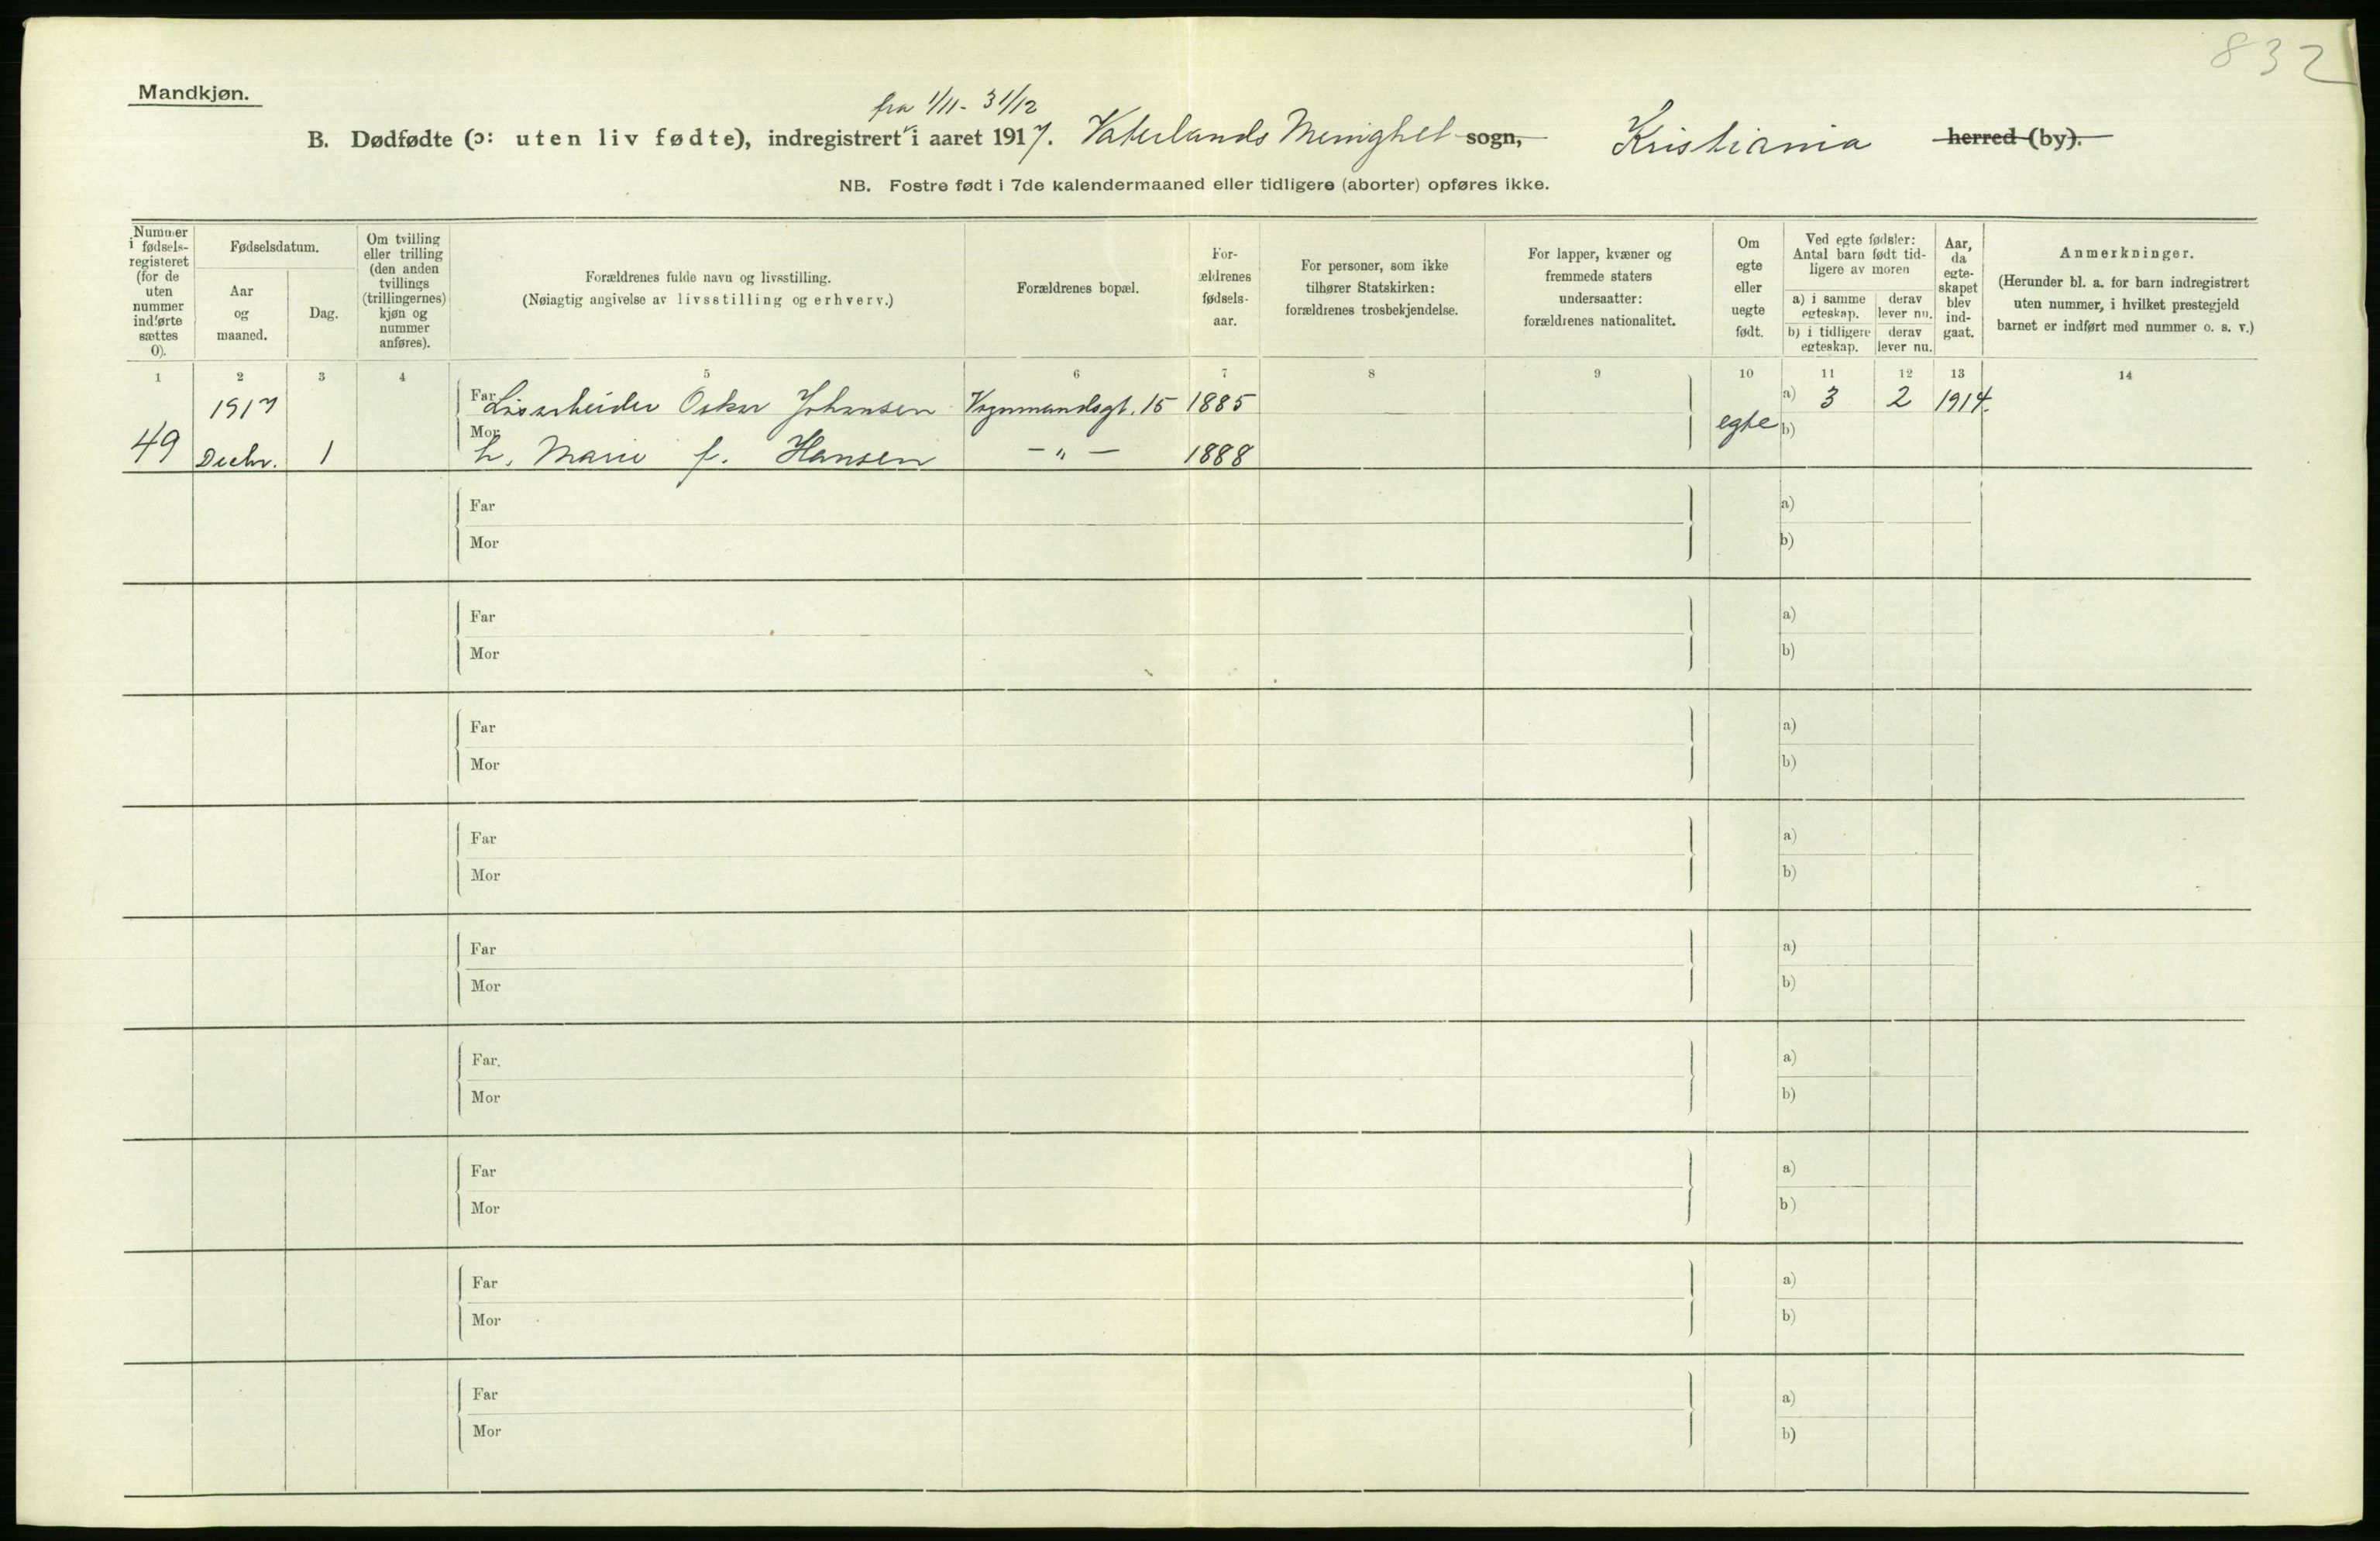 832
Mandkjøn.
fra 1/11 - 31/12
B. Dødfødte (ɔ: uten liv fødte), indregistrert i aaret 1917. Vaterlands Menighet sogn, Kristiania herred (by).
NB. Fostre født i 7de kalendermaaned eller tidligere (aborter) opføres ikke.
Nummer i fødsels-registeret (for de uten nummer indførte sættes 0).
Fødselsdatum.
Aar og maaned.
Dag.
Om tvilling eller trilling (den anden tvillings (trillingernes) kjøn og nummer anføres).
Forældrenes fulde navn og livsstilling.
(Nøiagtig angivelse av livsstilling og erhverv.)
Forældrenes bopæl.
For-ældrenes fødsels-aar.
For personer, som ikke tilhører Statskirken: forældrenes trosbekjendelse.
For lapper, kvæner og fremmede staters undersaatter: forældrenes nationalitet.
Om egte eller uegte født.
Ved egte fødsler: Antal barn født tid-ligere av moren
a) i samme egteskap. derav lever nu.
b) i tidligere egteskap. derav lever nu.
Aar, da egte-skapet blev ind-gaat.
Anmerkninger.
(Herunder bl. a. for barn indregistrert uten nummer, i hvilket prestegjeld barnet er indført med nummer o. s. v.)
1 2 3 4 5 6 7 8 9 10 11 12 13 14
1917 Far Løsarbeider Oskar Johansen Vognmandsgt. 15 1885 a) 3 2 1914.
49 Decbr. 1 Mor h. Marie f. Hansen - " - 1888 egte b)
Far a)
Mor b)
Far a)
Mor b)
Far a)
Mor b)
Far a)
Mor b)
Far a)
Mor b)
Far. a)
Mor b)
Far a)
Mor b)
Far a)
Mor b)
Far a)
Mor b)